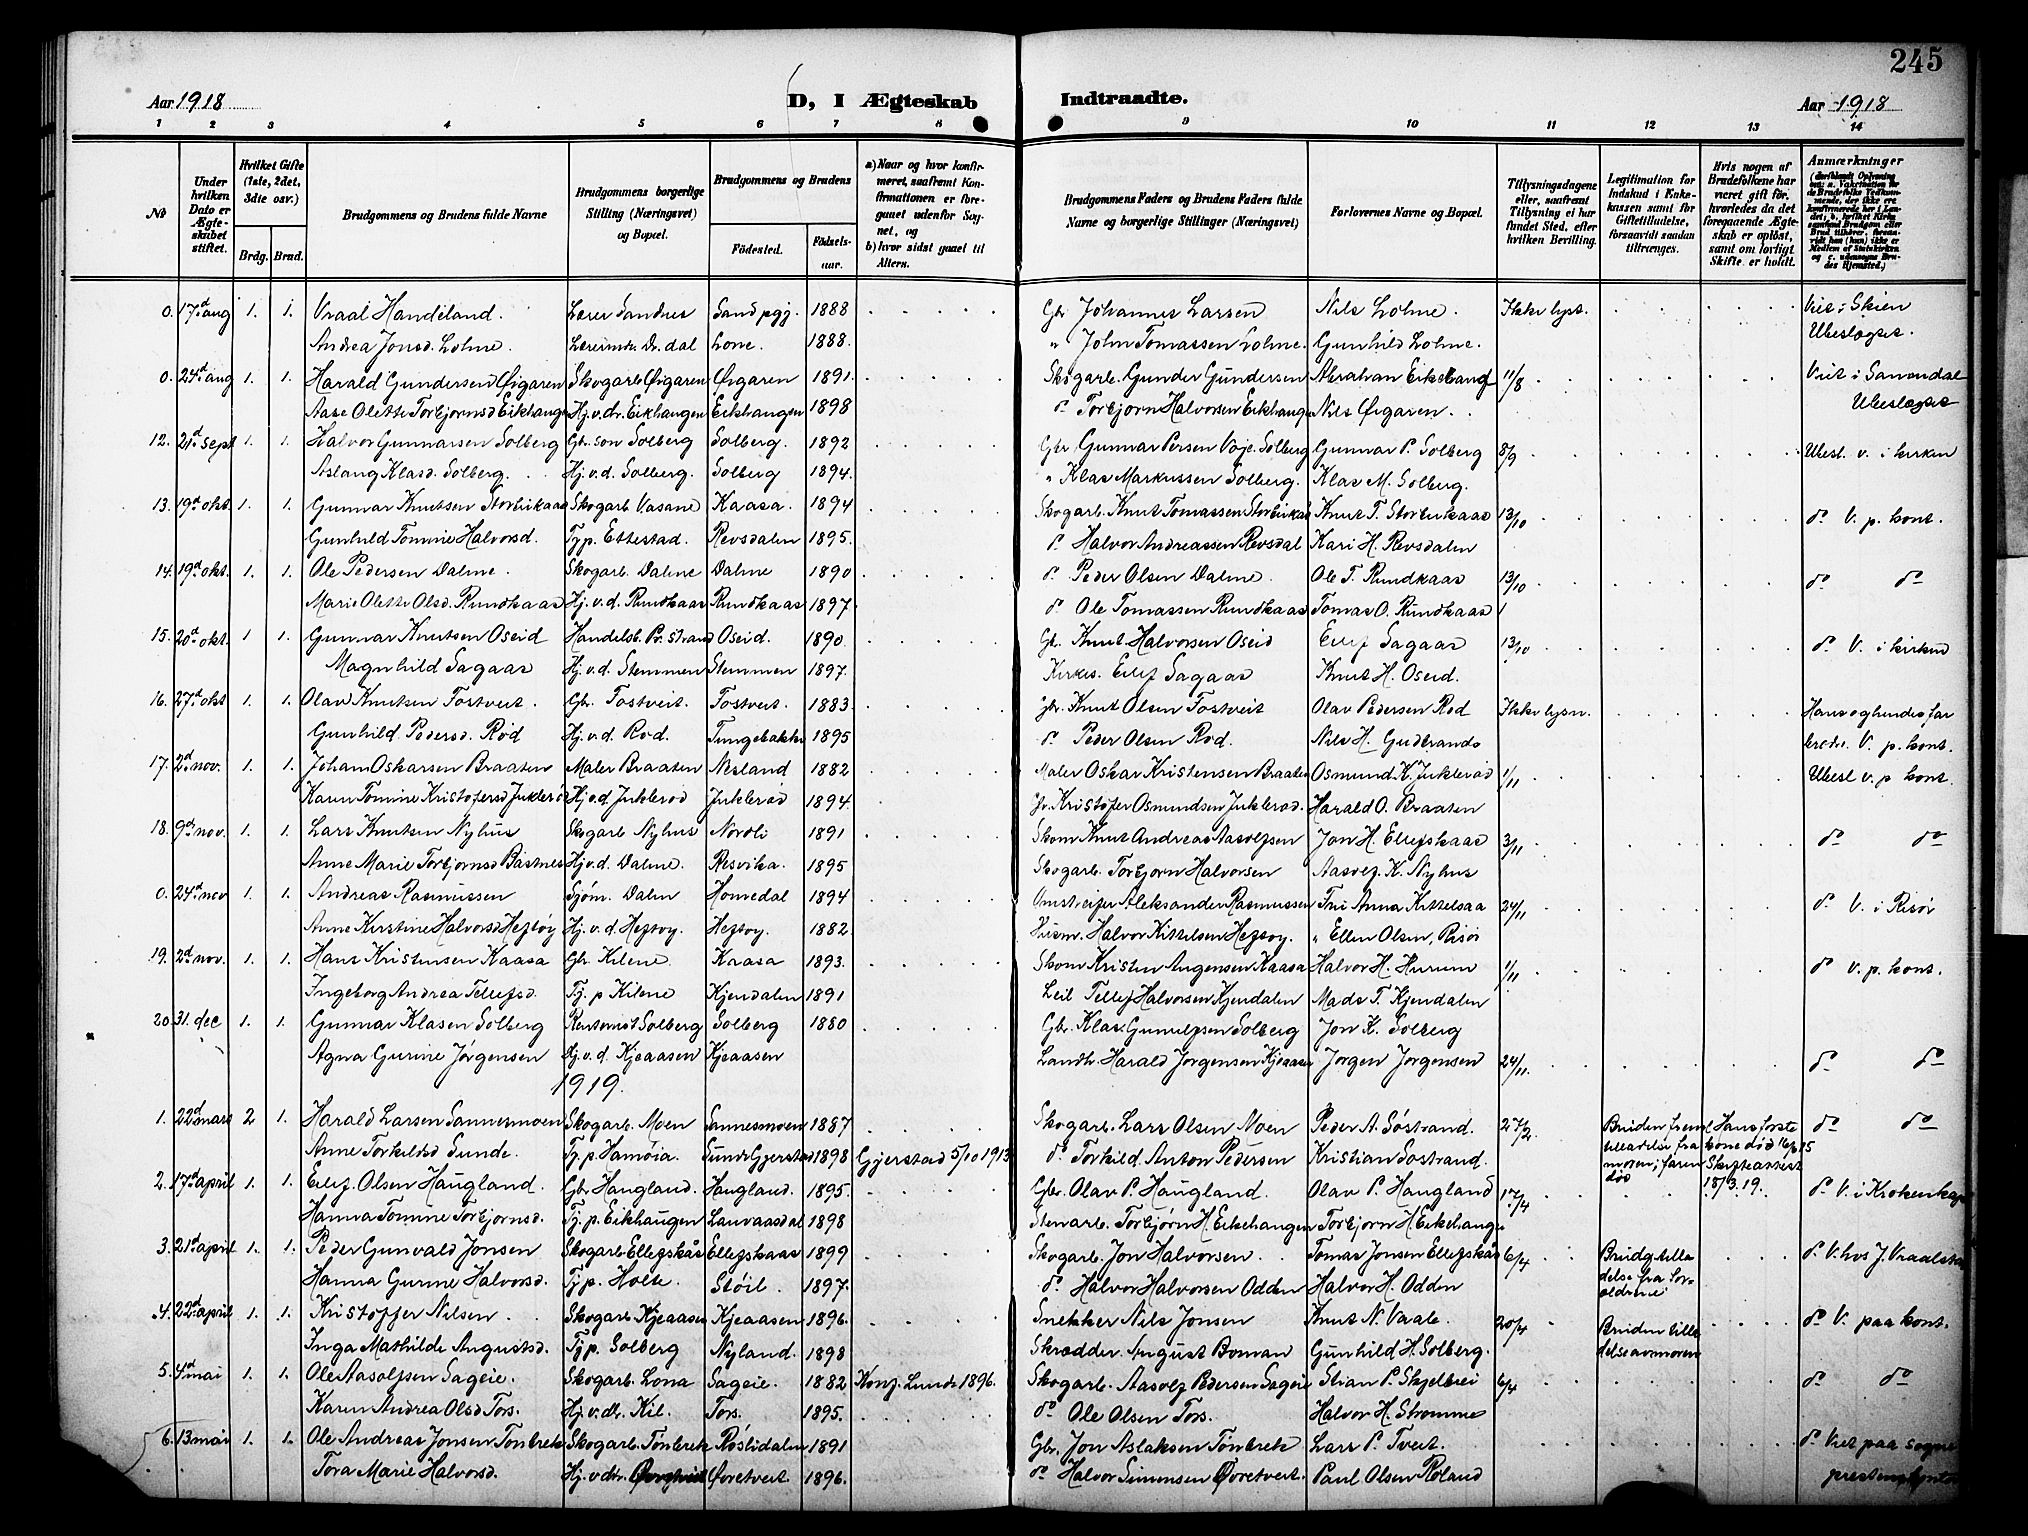 245
Aar 1918 D, I Ægteskab Indtraadte. Aar 1918
1 2 3 4 5 6 7 8 9 10 11 12 13 14
No
Under hvilken Dato er Ægteskabet stiftet.
Hvilket Gifte (1ste, 2det, 3die osv.)
Brdg. Brud.
Brudgommens og Brudens fulde Navne
Brudgommens borgerlige Stilling (Næringsvei) og Bopæl.
Brudgommens og Brudens
Fødested. Fødselsaar.
a) Naar og hvor konfirmeret, saafremt Konfirmationen er foregaaet udenfor Sognet, og
b) hvor sidst gaaet til Alters.
Brudgommens Faders og Brudens Faders fulde Navne og borgerlige Stillinger (Næringsvei)
Forlovernes Navne og Bopæl.
Tillysningsdagene eller, saafremt Tillysning ei har fundet Sted, efter hvilken Bevilling.
Legitimation for Indskud i Enkekassen samt for Giftetilladelse, forsaavidt saadan tiltrænges.
Hvis nogen af Brudefolkene har været gift før, hvorledes da det foregaaende Ægteskab er opløst, samt om lovligt Skifte er holdt.
Anmærkninger
0. 17d aug 1. 1. Vraal Handeland. Lærer Sandnes Sand pgj. 1888 Gbr Johannes Larsen Nils Lohne. Ikke lyst. Viet i Skien
Andrea Jonsd. Lohne. Lærerinde Dr. dal Lone. 1888. " John Tomassen Lohne. Gunhild Lohne. Ubeslægtet.
0. 24d aug 1. 1. Harald Gundersen Øigaren Skogarb Øigaren Øigaren 1891. Skogarb. Gunder Gundersen Abraham Eikehaug 11/8 Viet i Sanndal
Aase Olette Torbjørnsd Eikhaugen Hj.v.dr. Eikhaugen Eikhaugen 1898 do Torbjørn Halvorsen Eikhaugen Nils Øigaren. Ubeslægtet
12. 21d sept 1. 1. Halvor Gunnarsen Solberg Gbr. søn Solberg Solberg. 1892 Gbr Gunnar Persen Voje Solberg Gunnar P. Solberg 8/9 Ubesl. v. i kirken
Aslaug Klasd. Solberg. Hj.v.d. Solberg. Solberg 1894. " Klas Markussen Solberg. Klas M. Solberg.
13. 19d okt. 1. 1. Gunnar Knutsen Storbukaas Skogarb Vasane Kaasa. 1894 Skogarb. Knut Tomassen Storbukaas Knut T. Storbukaas 13/10 do V. p. kont.
Gunhild Tomine Halvorsd. Tj p. Ettestad. Revsdalen 1895. do Halvor Andreassen Revsdal Kari H. Revsdalen
14. 19d okt. 1. 1. Ole Pedersen Dalene. Skogarb. Dalene Dalene 1890 do Peder Olsen Dalene. Ole T. Rundkaas 13/10 do do
Marie Olette Olsd. Rundkaas Hj.v.d. Rundkaas Rundkaas 1897. do Ole Tomassen Rundkaas Tomas O. Rundkaas
15. 20d okt. 1 1. Gunnar Knutsen Oseid Handelsb. Pr. strand Oseid. 1890. Gb. Knut Halvorsen Oseid Ellef Sagaas 13/10 do V. i kirken
Magnhild Sagaas Hj.v.d. Stemmen Stemmen 1897. Kirkes. Ellef Sagaas Knut H. Oseid.
16. 27d okt 1. 1. Olav Knutsen Tostveit. Gbr. Tostveit. Tostveit. 1883. gbr. Knut Olsen Tostveit Olav Pedersen Rød Ikke lysn. Hans og hendes far
Gunhild Pedersd. Rød Hj.v.d. Rød. Tungebakke 1895 do Peder Olsen Rød. Nils H. Gudbrands brødre. V. p. kont.
17. 2d nov. 1. 1. Johan Oskarsen Braaten Maler Braaten Nesland 1882 Maler Oskar Kristensen Braaten Osmund K. Juklerød 1/11 Ubesl v. p kont.
Karen Tomine Kristofersd Juklerød Hj.v.d. Juklerød Juklerød 1894. Gbr. Kristofer Osmundsen Juklerød. Harald O. Braaten
18. 9d nov. 1. 1. Lars Knutsen Nyhus Skogarb Nyhus Nordli 1891 Skom Knut Andreas Aasolfsen Jon H. Ellefskaas 3/11 do do
Anne Marie Torbjørnsd Båstnes Hj.v.d. Dalene. Resvika. 1895 Skogarb. Torbjørn Halvorsen Aasolf K. Nyhus
0. 24d nov 1. 1. Andreas Rasmussen Sjøm. Dalen Homedal 1894 Omstreifer Aleksander Rasmussen Fru Anna Kittelsaa 24/11 do V. i Risør
Anne Kirstine Halvorsd Heftøy Hj.v.d. Heftøy. Heftøy. 1882. Husm. Halvor Kittelsen Heftøy. " Ellen Olsen, Risør
19. 2d nov. 1. 1. Hans Kristensen Kaasa Gbr Kilene. Kaasa 1893. Skom Kristen Angensen Kaasa Halvor H. Hurum 1/11 do v. p. kont.
Ingeborg Andrea Tellefsd. Tj. p Kilene Kjendalen 1891 Leil Tellef Halvorsen Kjendalen Mads T. Kjendalen
20. 31. dec 1. 1. Gunnar Klasen Solberg Solberg Solberg 1880 Gbr. Klas Gunulfsen Solberg Jon K. Solberg
Agna Gurine Jørgensen Hj.v.d. Kjeaasen Kjeaasen Landh. Harald Jørgensen Kjeaasen Jørgen Jørgensen 24/11. do do
1919.
1. 22d mars 2 1. Harald Larsen Sannesmoen Skogarb. Moen Sannesmoen 1887 Skogarb. Lars Olsen Moen Peder A. Søstrand. 27/2. Bruden freml. tilladelse fra moren, faren død Hans første kone død 16/6 15 Skifteattest 18/3.19. do do
Anne Torkildsd Sunde. Tj. p. Hamøia. Sunde Gjerstad 1898 Gjerstad 5/10 1913 do Torkild Anton Pedersen Kristian Søstrand.
2. 17d april 1. 1. Ellef. Olsen Haugland. Gbr Haugland. Haugland. 1895. Gbr. Olav P. Haugland. Olav P. Haugland 17/4 do V. i Krokenkap
Hanna Tomine Torbjørnsd. Tj. p. Eikhaugen Lauvaasdal 1898 Stenarb. Torbjørn H. Eikehaugen Torbjørn H. Eikehaugen
3. 21d april 1. 1. Peder Gunvald Jonsen Skogarb Ellefskås Ellefskaas 1899 Skogarb. Jon Halvorsen. Tomas Jonsen Ellefskås 6/4 Brudg. tilladelse fra foreldrene do V. hos J. Vraalstad
Hanna Gurine Halvorsd. Tj p. Holte. Støil. 1897. do Halvor Halvorsen Odden Halvor H. Odden
4. 22d april 1. 1. Kristoffer Nilsen Skogarb Kjeaasen Kjeaasen 1896. Snekker Nils Jonsen Knut N. Vaale. 20/4 Bruden tilladelse av moren do V. paa kont.
Inga Mathilde Augustsd. Tj p. Solberg Nyland. 1898 Skrædder. August Boman Gunhild H. Solberg.
5. 4d mai 1. 1. Ole Aasolfsen Sageie. Skogarb. Lona Sageie. 1882 Konf. Lunde 1896. Skogarb. Aasolf Pedersen Sageie Stian P. Skjelbrei 6/4 do do
Karen Andrea Olsd Tors. Hj.v.dr. Kil. Tors. 1895. do Ole Olsen Tors. Halvor H. Strømme
6. 13 mai 1. 1. Ole Andreas Jonsen Tønbrek Skogarb. Tønbrek Røslidalen 1891 Gbr. Jon Aslaksen Tønbrek Lars P. Tveit. do Viet paa sogne
Tora Marie Halvorsd. Hj.v.dr. Øvretveit. 1896. do Halvor Simonsen Øvretveit. Paul Olsen Røland prestens kontor